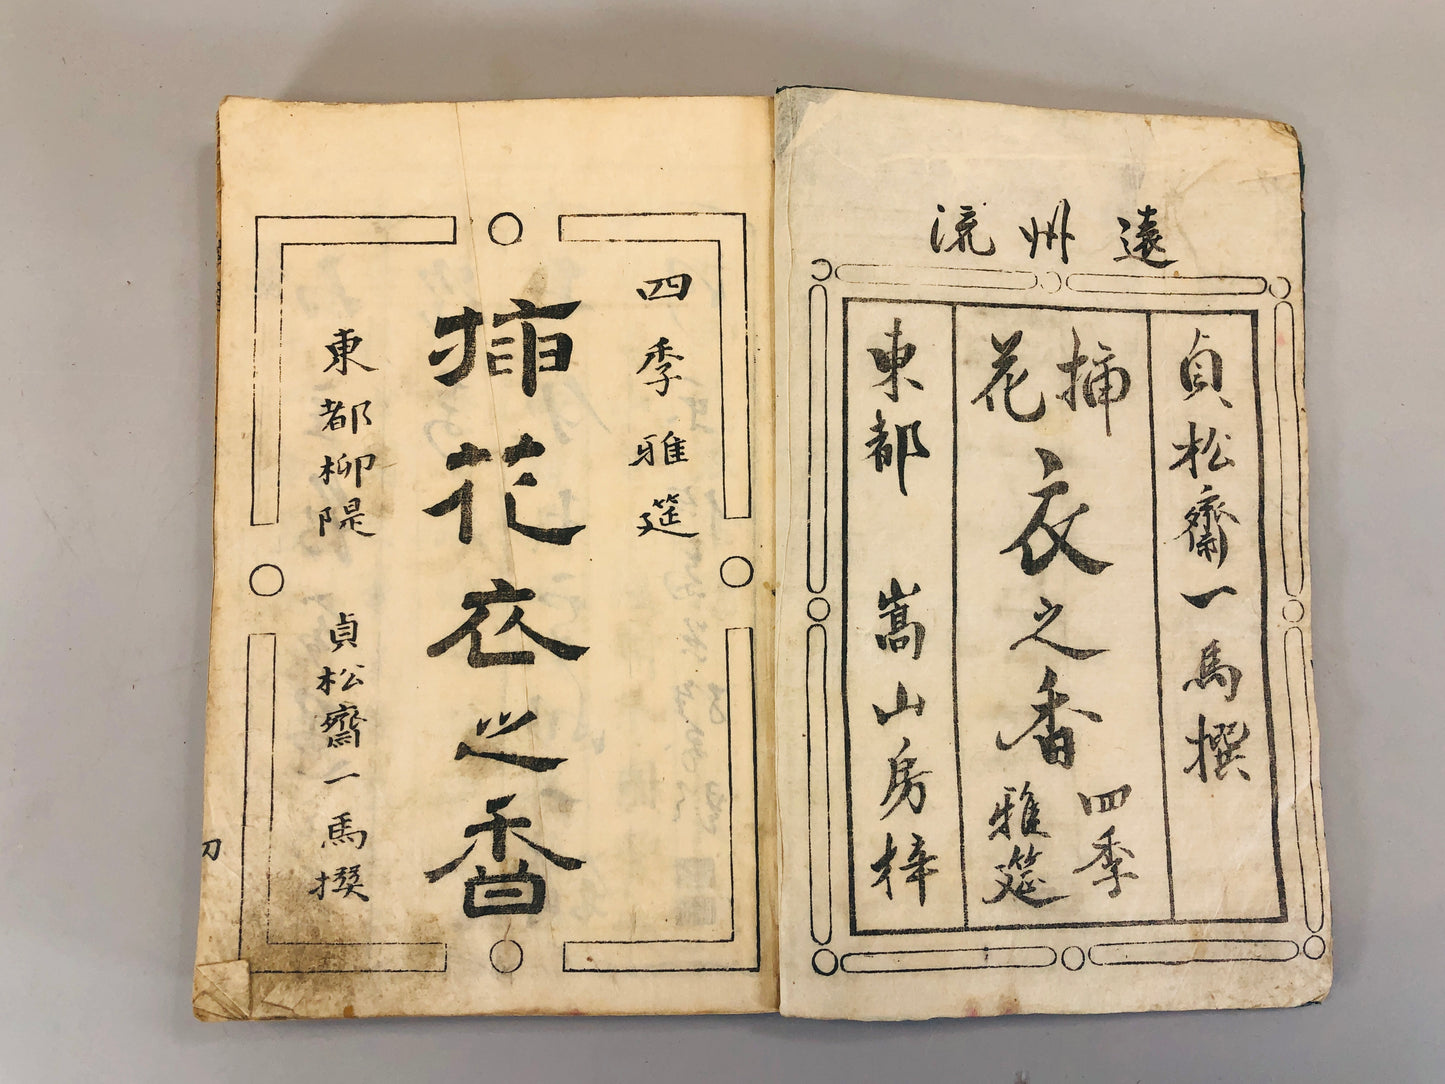 遠州流
貞松齋一馬撰
揷花衣之香
四季
雅筵
東都 嵩山房梓
四季雅筵
揷花衣之香
東都柳隄 貞松齋一馬撰